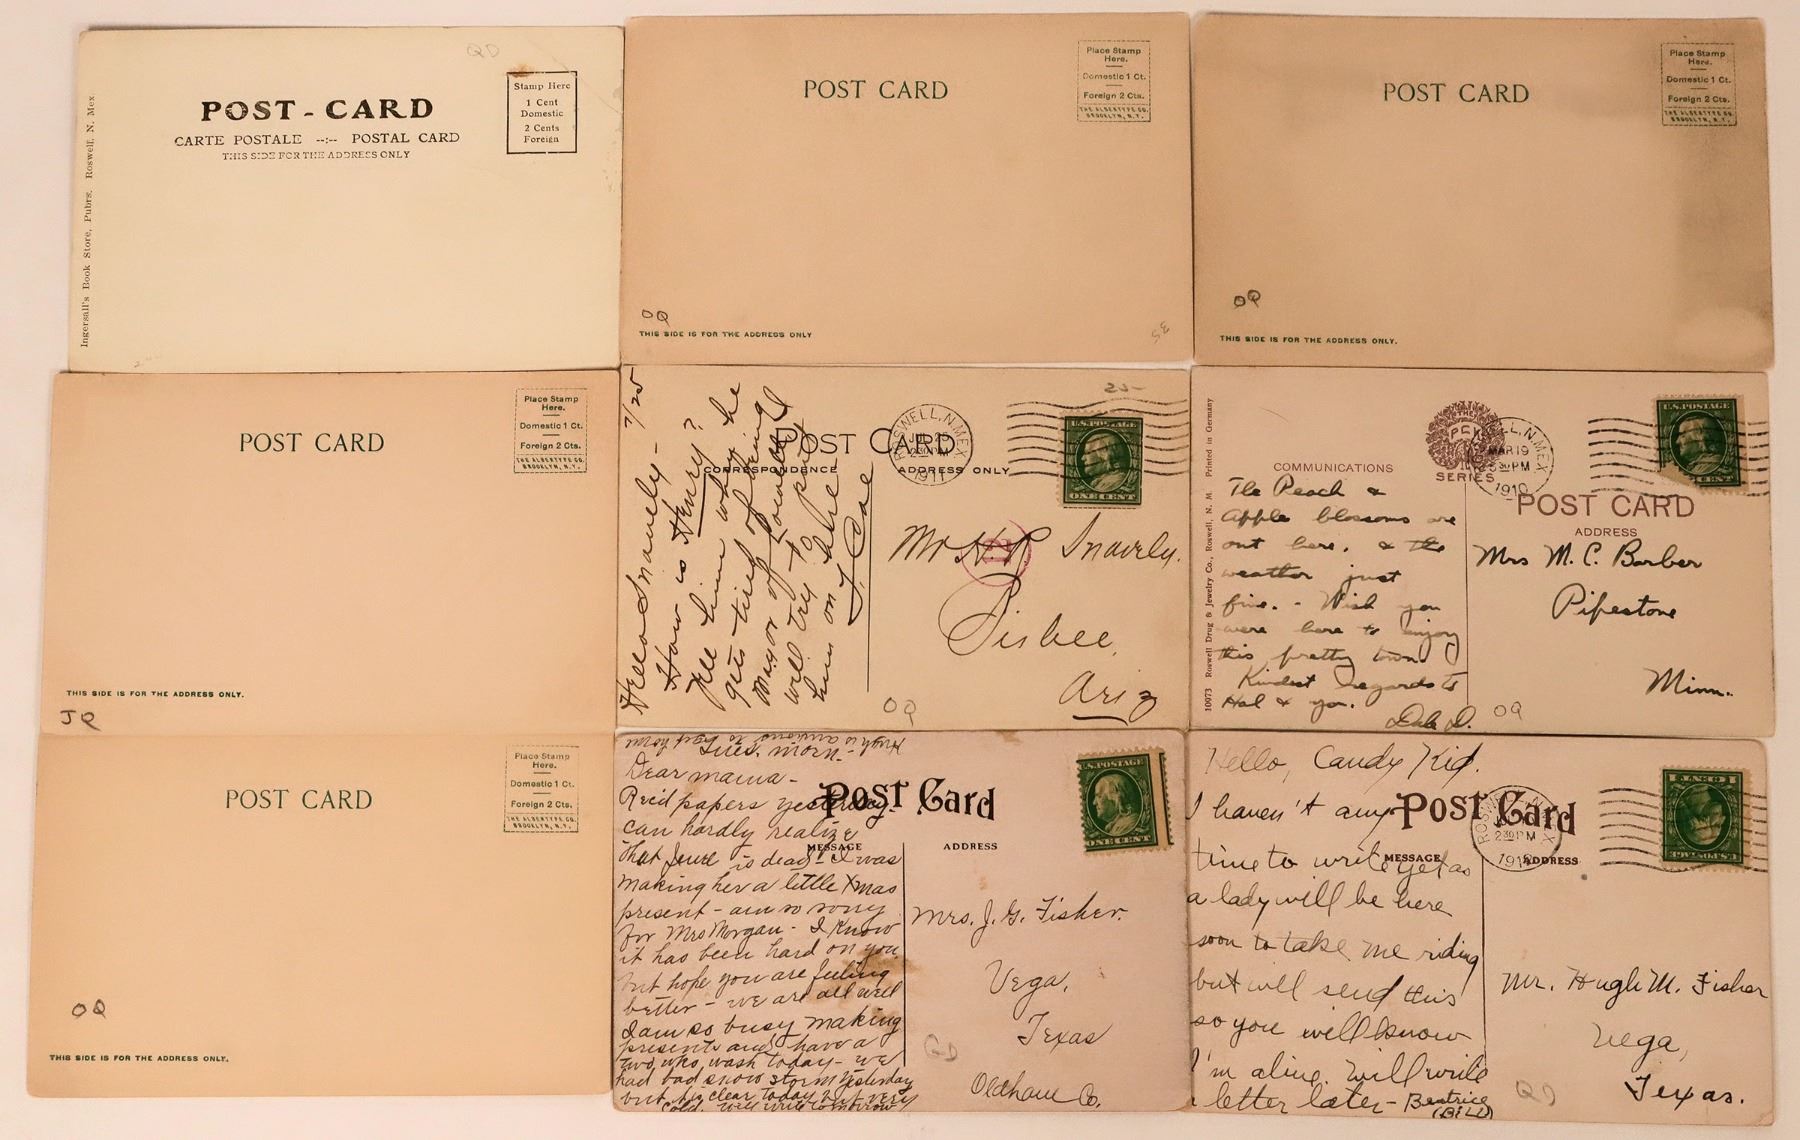 POST-CARD
CARTE POSTALE --:-- POSTAL CARD
THIS SIDE FOR THE ADDRESS ONLY
Stamp Here
1 Cent
Domestic
2 Cents
Foreign
Ingersall's Book Store, Pubrs. Roswell, N. Mex
POST CARD
Place Stamp
Here.
Domestic 1 Ct.
Foreign 2 Cts.
THE ALBERTYPE CO.
BROOKLYN, N.Y.
OQ
THIS SIDE IS FOR THE ADDRESS ONLY
POST CARD
Place Stamp
Here.
Domestic 1 Ct.
Foreign 2 Cts.
THE ALBERTYPE CO.
BROOKLYN, N.Y.
OQ
THIS SIDE IS FOR THE ADDRESS ONLY.
POST CARD
Place Stamp
Here.
Domestic 1 Ct.
Foreign 2 Cts.
THE ALBERTYPE CO.
BROOKLYN, N.Y.
THIS SIDE IS FOR THE ADDRESS ONLY.
JQ
7/25
Hello Snavely-
How is Henry?
Tell him when he
gets tired of being
Mayor of
will try to
him on
J. Coe
POST CARD
CORRESPONDENCE
ADDRESS ONLY
ROSWELL, N.MEX.
JUL 25
2 30 PM
1911
U.S. POSTAGE
ONE CENT
25-
Mr H. R. Snavely.
Bisbee,
Ariz
OQ
10073 Roswell Drug & Jewelry Co., Roswell, N. M Printed in Germany
COMMUNICATIONS
SERIES
POST CARD
ADDRESS
MAR 19
30 PM
1910
U.S. POSTAGE
CENT
The Peach &
apple blossoms are
out here. & the
weather just
fine. - Wish you
were here to enjoy
this pretty town
Kindest regards to
Hal & you.
Dale D.
Mrs M. C. Barber
Pipestone
Minn.
OQ
POST CARD
Place Stamp
Here.
Domestic 1 Ct.
Foreign 2 Cts.
THE ALBERTYPE CO.
BROOKLYN, N.Y.
OQ
THIS SIDE IS FOR THE ADDRESS ONLY.
Hugh is anxious to get home
Tues. morn-
Dear mama-
Rec'd papers yesterday-
can hardly realize
that is dead. I was
making her a little Xmas
present - am so sorry
for Mrs Morgan - I know
it has been hard on you
but hope you are feeling
better - we are all well
I am so busy making
presents and have a
who wash today - we
had bad snow storm yesterday
but it is clear today but very
cold. Will write tomorrow
Post Card
MESSAGE
ADDRESS
U.S. POSTAGE
ONE CENT
Mrs. J. G. Fisher.
Vega,
Texas
Oldham Co.
Hello, Candy Kid.
I haven't any
time to write yet as
a lady will be here
soon to take me riding
but will send this
so you will know
I'm alive. Will write
letter later- Beatrice
(Bill)
Post Card
MESSAGE
ADDRESS
2 30 PM
U.S. POSTAGE
1 CENT 1
Mr. Hugh M. Fisher
Vega,
Texas.